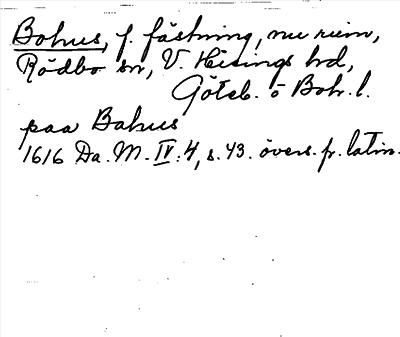 Bohus, f. fästning, nu ruin,
Rödbo sn, V. Hisings hd,
Göteb. o Boh. l.
paa Bahus
1616 Da. M. IV:4, s. 43. övers. fr. latin.